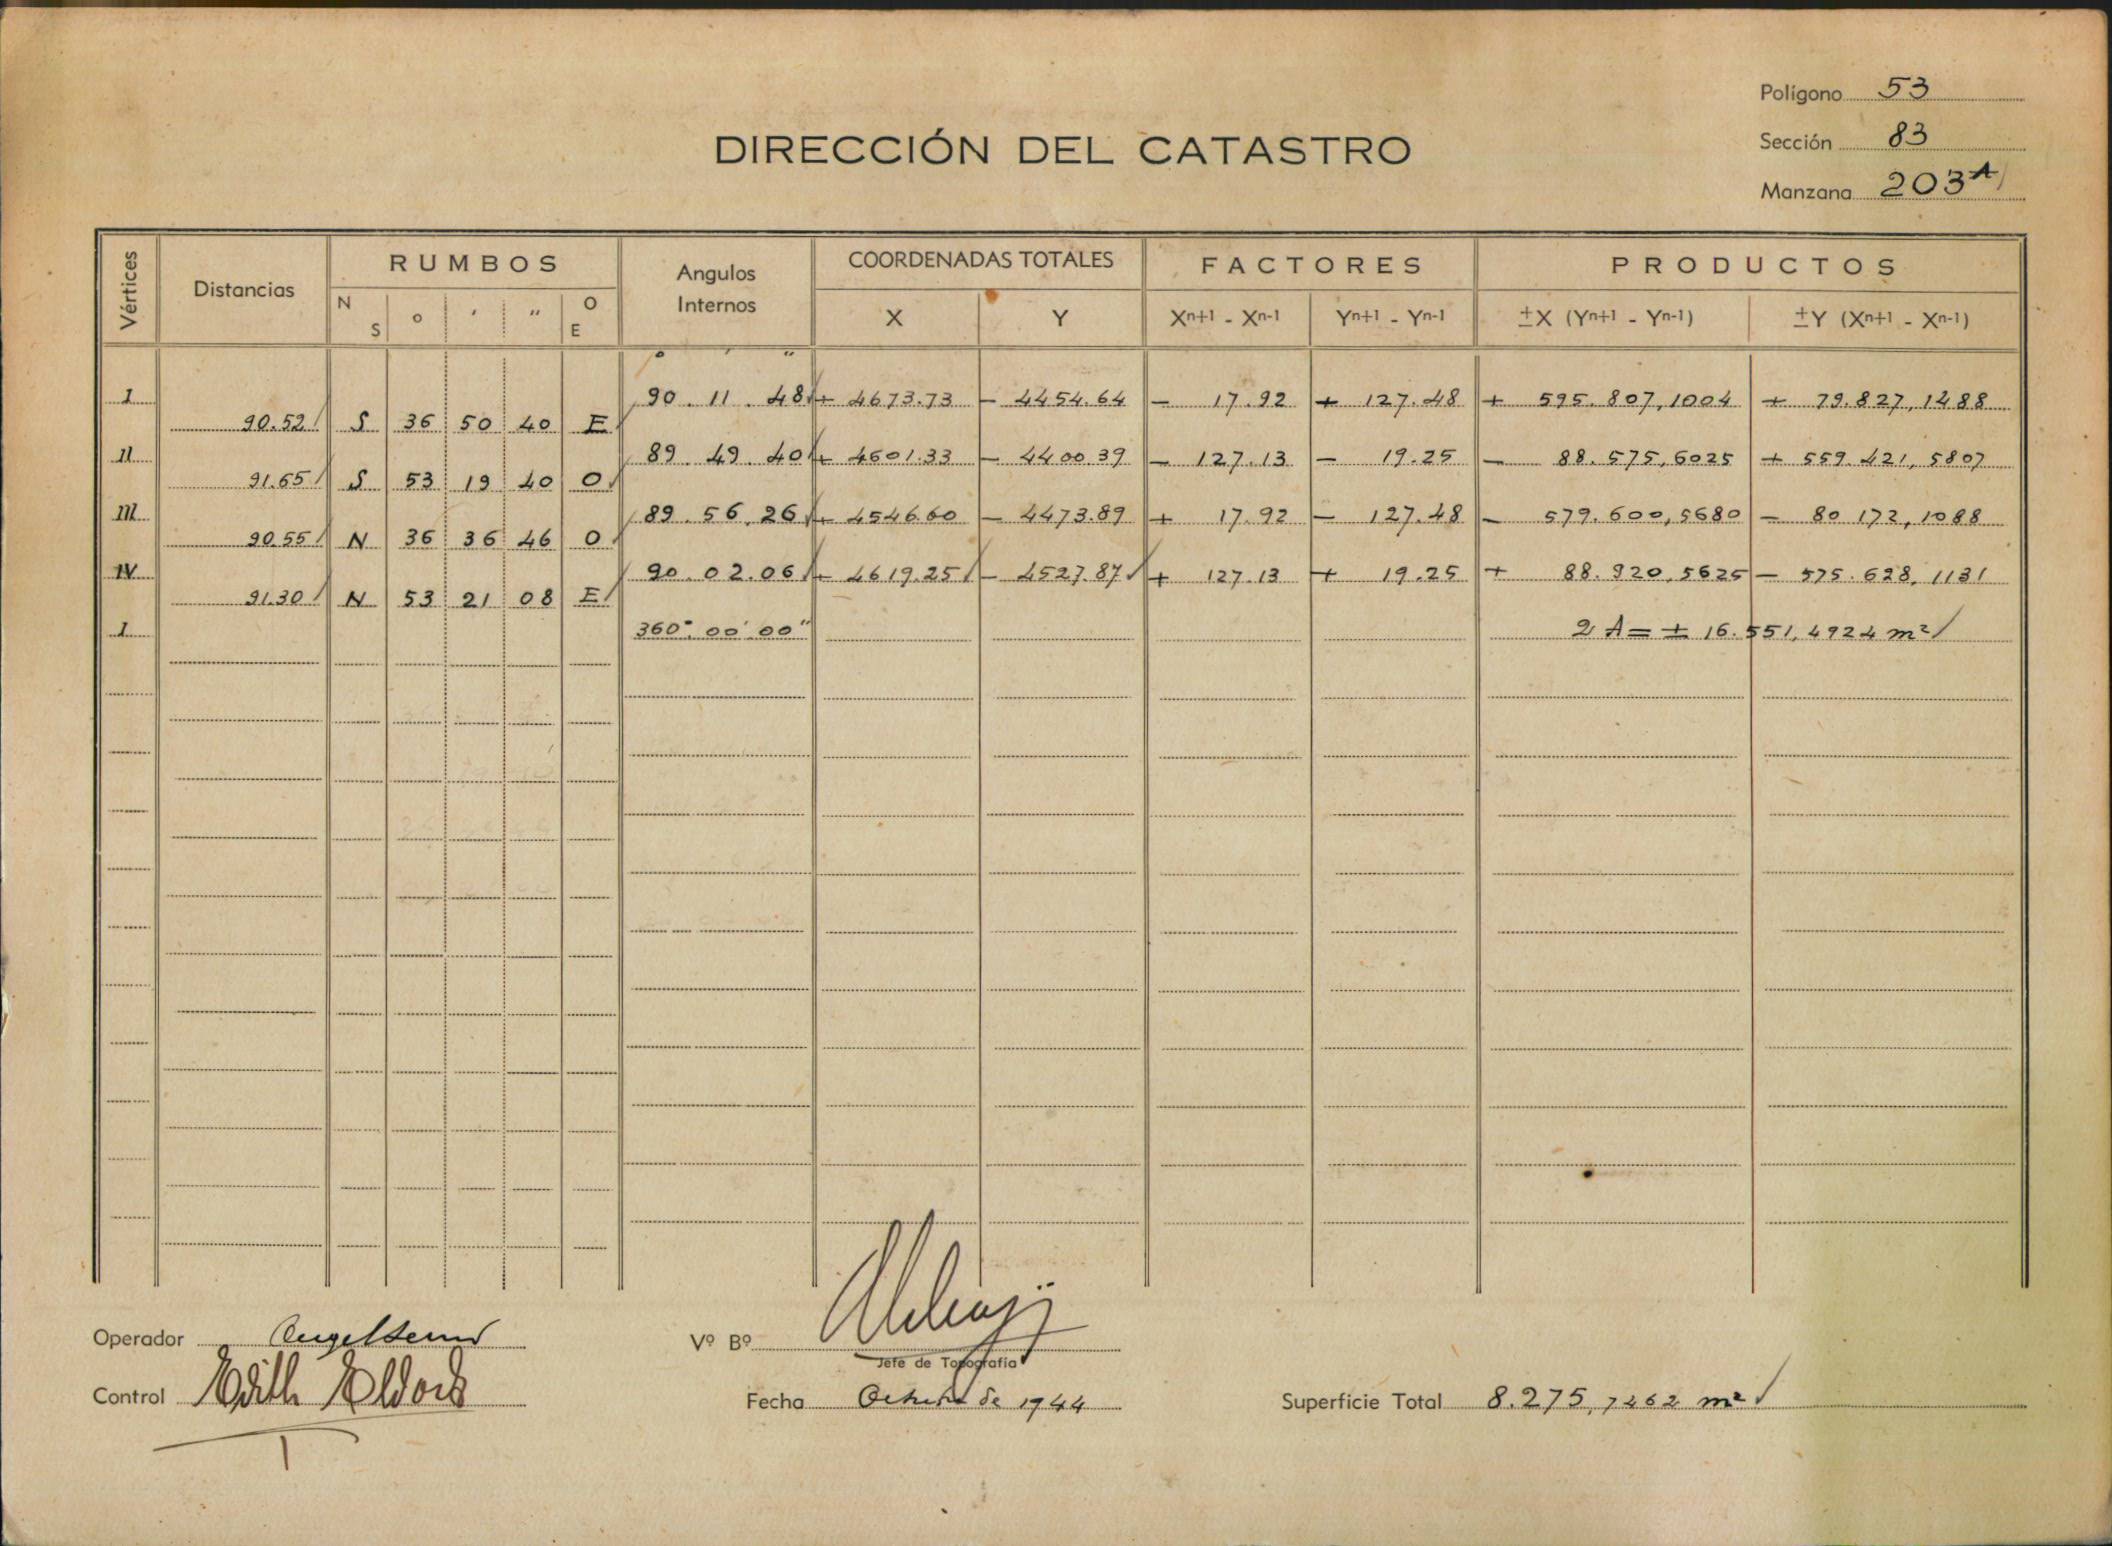 Polígono 53
DIRECCIÓN DEL CATASTRO
Sección 83
Manzana 203A
Vértices Distancias RUMBOS N S ° ' " O E Angulos Internos COORDENADAS TOTALES X Y FACTORES Xn+1 - Xn-1 Yn+1 - Yn-1 PRODUCTOS ±X (Yn+1 - Yn-1) ±Y (Xn+1 - Xn-1)
° ' "
I 90. 11. 48 + 4673.73 - 4454.64 - 17.92 + 127.48 + 595.807,1004 + 79.827,1488
90.52 S 36 50 40 E
II 89. 49. 40 + 4601.33 - 4400.39 - 127.13 - 19.25 - 88.575,6025 + 559.421,5807
91.65 S 53 19 40 O
III 89. 56. 26 + 4546.60 - 4473.89 + 17.92 - 127.48 - 579.600,5680 - 80 172,1088
90.55 N 36 36 46 O
IV 90. 02. 06 + 4619.25 - 4527.87 + 127.13 + 19.25 + 88.920,5625 - 575.628,1131
91.30 N 53 21 08 E
I 360°. 00' 00" 2 A = ± 16.551,4924 m²
Operador Vº Bº
Jefe de Topografía
Control Edith Fecha Octubre de 1944 Superficie Total 8.275,7462 m²